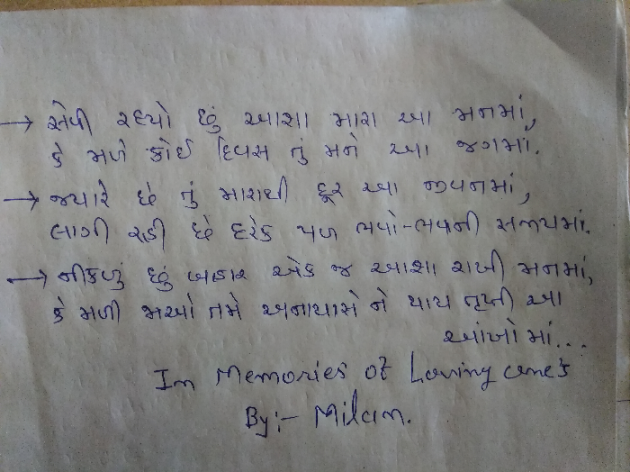 → સેવી રહ્યો છું આશા મારા આ મનમાં,
કે મળે કોઈ દિવસ તું મને આ જગમાં.
→ જ્યારે છે તું મારાથી દૂર આ જીવનમાં,
લાગી રહી છે દરેક પળ ભવો-ભવની સજામાં.
→ નીકળું છું બહાર એક જ આશા રાખી મનમાં,
કે મળી જાઓ તમે અનાયાસે ને થાય તૃપ્તી આ
આંખોમાં...
In Memories of Loving one's
By:- Milan.